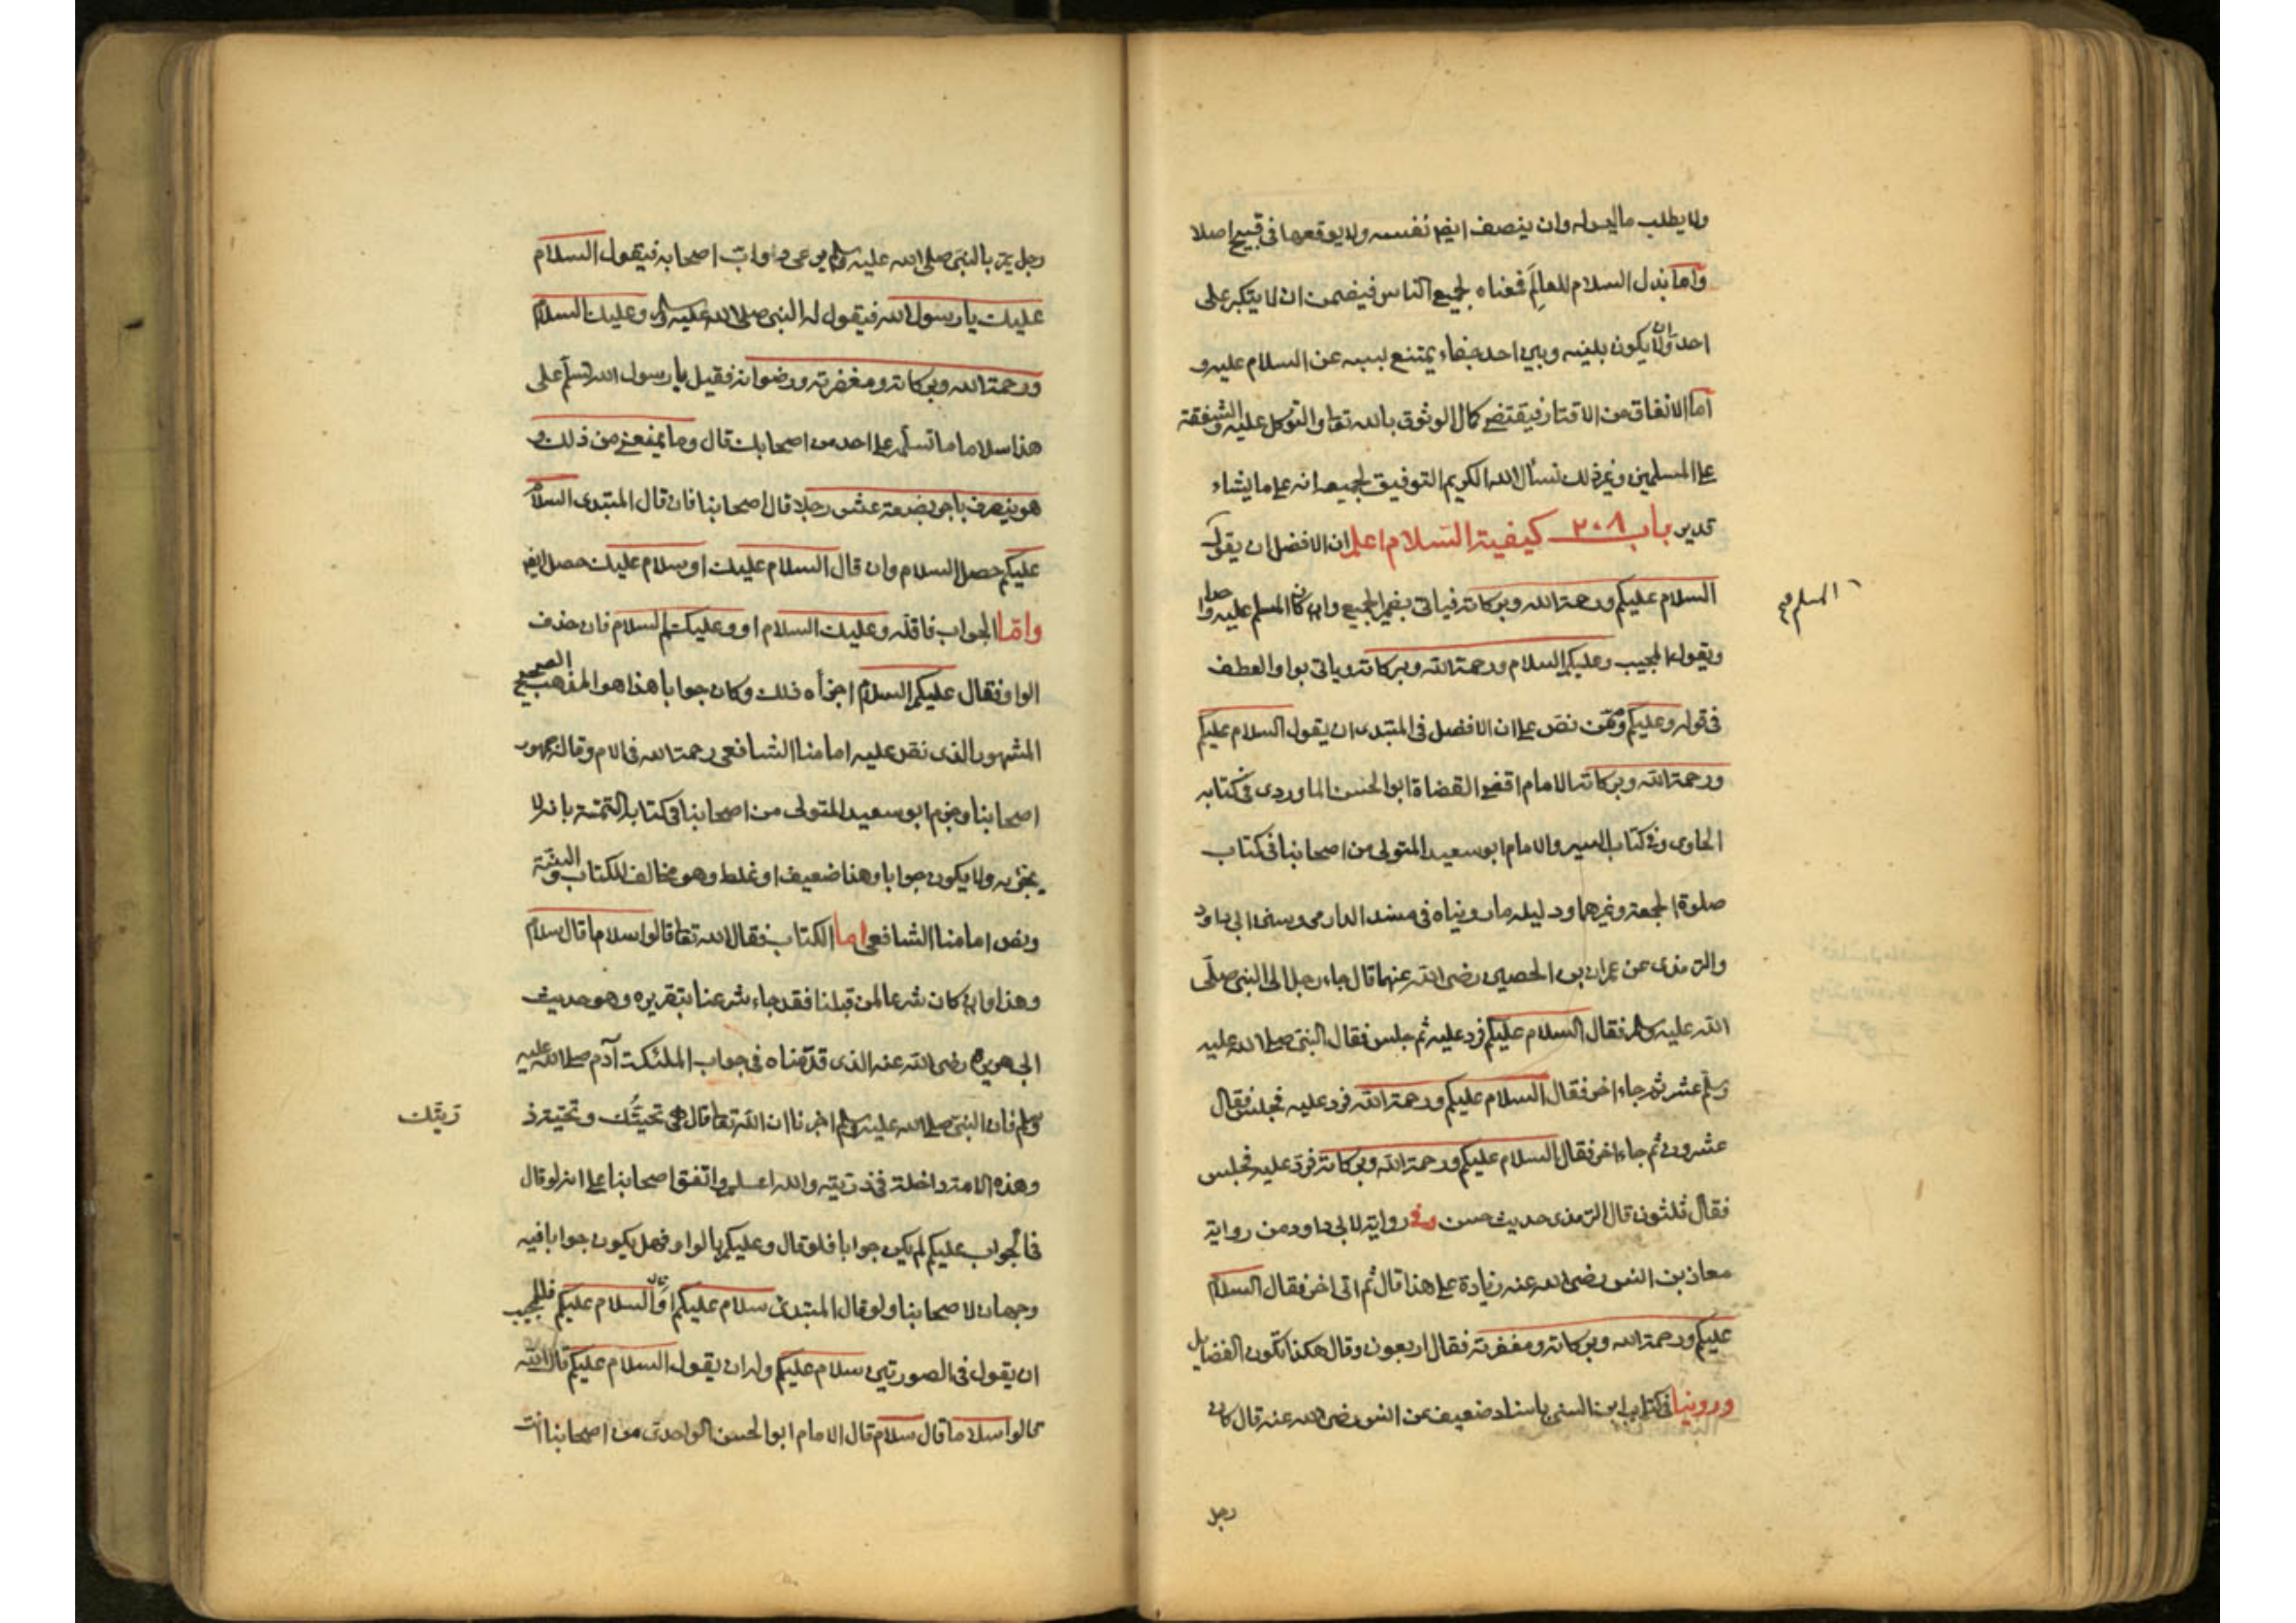 ولا يطلب ما ليس له وان ينصف ايضا نفسه ولا يوقعها في قبيح اصلا
واما بذل السلام للعالم فمعناه لجميع الناس فيضمن ان لا يتكبر على
احد وان لا يكون بينه وبين احد جفاء يمتنع بسببه عن السلام عليه و
اما الانفاق من الاقتار فيقتضي كمال الوثوق بالله تعا والتوكل عليه والشفقة
على المسلمين وغير ذلك نسأل الله الكريم التوفيق لجميعه انه على ما يشاء
قدير باب ٢٠٨ كيفية السلام اعلم ان الافضل ان يقول
السلام عليكم ورحمة الله وبركاته فياتي بضمير الجمع وان كان المسلم عليه واحدا
المسلم صح
ويقول المجيب وعليكم السلام ورحمة الله وبركاته وياتي بواو العطف
في قوله وعليكم وممن نص على ان الافضل في المبتدى ان يقول السلام عليكم
ورحمة الله وبركاته الامام اقضى القضاة ابو الحسن الماوردى في كتابه
الحاوى في كتاب السير والامام ابو سعيد المتولى من اصحابنا في كتاب
صلوة الجمعة وغيرهما ودليله ما روينا​ه في مسند الدارمى وسنن ابى داود
والترمذى عن عمران بن الحصين رضى الله عنهما قال جاء رجل الى النبى صلى
الله عليه وسلم فقال السلام عليكم فرد عليه ثم جلس فقال النبى صلى الله عليه
وسلم عشر ثم جاء اخر فقال السلام عليكم ورحمة الله فرد عليه فجلس فقال
عشرون ثم جاء اخر فقال السلام عليكم ورحمة الله وبركاته فرد عليه فجلس
فقال ثلثون قال الترمذى حديث حسن وفى رواية لابى داود من رواية
معاذ بن انس رضى الله عنه زيادة على هذا قال ثم اتى اخر فقال السلام
عليكم ورحمة الله وبركاته ومغفرته فقال اربعون وقال هكذا تكون الفضايل
وروينا في كتاب ابن السنى باسناد ضعيف عن انس رضى الله عنه قال كان
رجل
رجل يمر بالنبى صلى الله عليه وسلم يرعى دواب اصحابه فيقول السلام
عليك يا رسول الله فيقول له النبى صلى الله عليه وسلم وعليك السلام
ورحمة الله وبركاته ومغفرته ورضوانه فقيل يا رسول الله تسلم على
هذا سلاما ما تسلمه على احد من اصحابك قال وما يمنعنى من ذلك و
هو ينصرف باجر بضعة عشر رجلا قال اصحابنا فان قال المبتدى السلام
عليكم حصل السلام وان قال السلام عليك او سلام عليك حصل ايضا
واما الجواب فاقله وعليك السلام او وعليكم السلام فان حذف
الواو فقال عليكم السلام اجزأه ذلك وكان جوابا هذا هو المذهب الصحيح
المشهور الذى نص عليه امامنا الشافعى رحمة الله في الام وقاله جمهور
اصحابنا وجزم ابو سعيد المتولى من اصحابنا في كتابه التتمة بانه لا
يجزيه ولا يكون جوابا وهذا ضعيف او غلط وهو مخالف للكتاب والسنة
ونص امامنا الشافعى اما الكتاب فقال الله تعا قالوا سلاما قال سلام
وهذا وان كان شرعا لمن قبلنا فقد جاء شرعنا بتقريره وهو حديث
ابى هريرة رضى الله عنه الذى قدمناه في جواب الملئكة آدم صلى الله عليه
وسلم فان النبى صلى الله عليه وسلم اخبرنا ان الله تعا قال هى تحيتك وتحية ذ
ريتك
وهذه الامة داخلة في ذريته والله اعلم واتفق اصحابنا على انه لو قال
في الجواب عليكم لم يكن جوابا فلو قال وعليكم بالواو فهل يكون جوابا فيه
وجهان لاصحابنا ولو قال المبتدئ سلام عليكم او قال السلام عليكم فللمجيب
ان يقول في الصورتين سلام عليكم وله ان يقول السلام عليكم قال الله
قالوا سلاما قال سلام قال الامام ابو الحسن الواحدى من اصحابنا انت